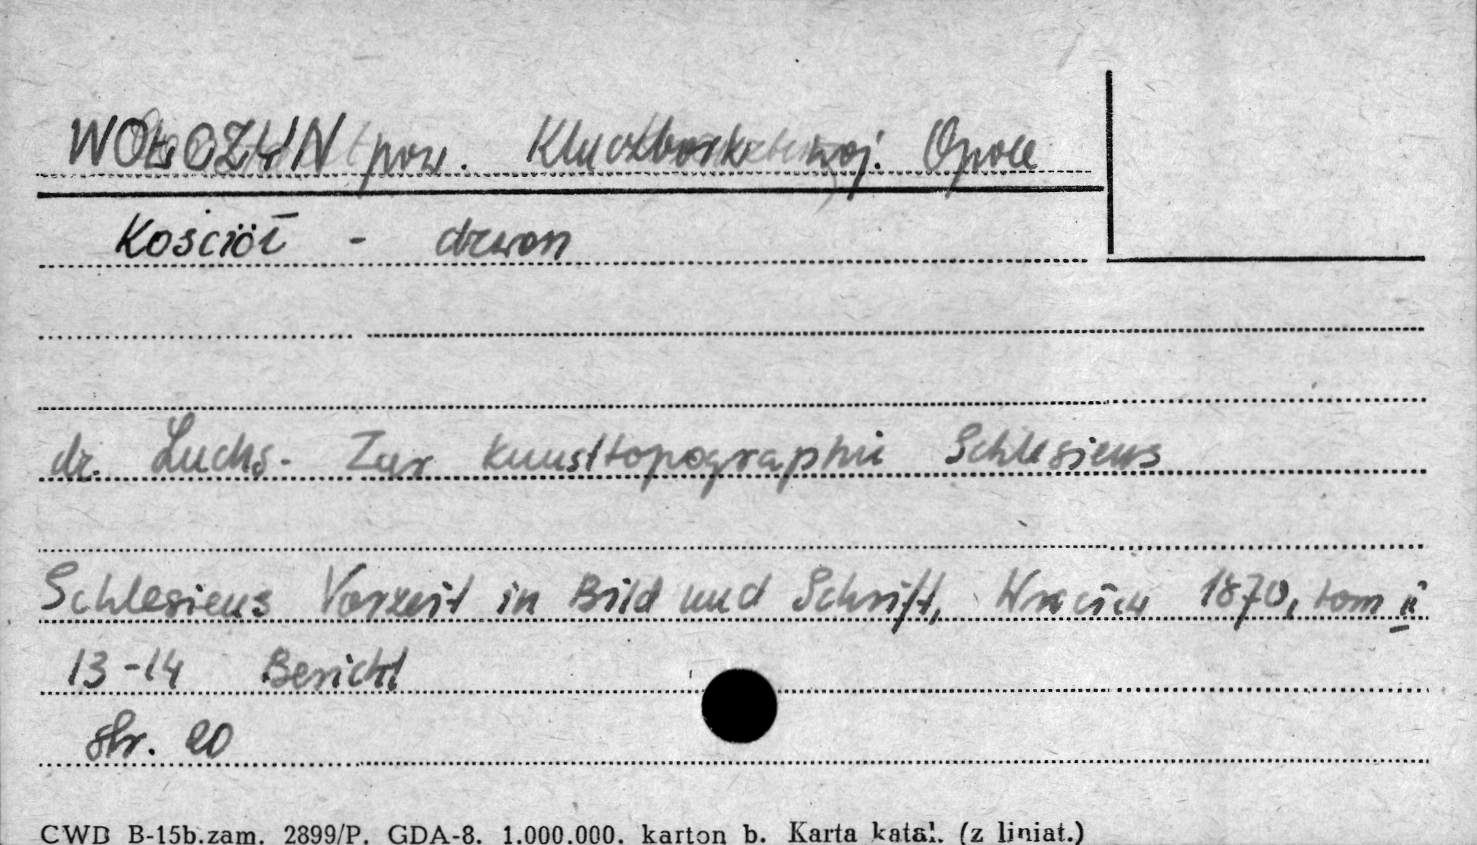 WOŁOZYN pow. Kluczbork woj. Opole
Kościół - drewn
dr. Luchs - Zur Kunsttopographie Schlesiens
Schlesiens Vorzeit in Bild und Schrift, 1870, tom II
13-14 Bericht
str. 20
CWD B-15b.zam. 2899/P. GDA-8. 1.000.000. karton b. Karta katal. (z liniat.)